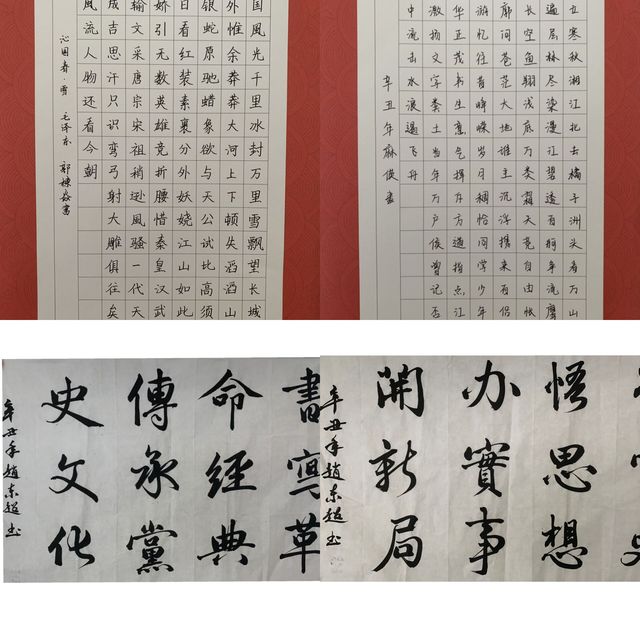 国風光千里冰封万里雪飘望长城
外惟余莽莽大河上下顿失滔滔山
银蛇原驰蜡象欲与天公试比高须
日看红装素裹分外妖娆江山如此
娇引无数英雄竞折腰惜秦皇汉武
输文采唐宗宋祖稍逊風骚一代天
成吉思汗只识弯弓射大雕俱往矣
風流人物还看今朝
沁园春·雪 毛泽东
立寒秋湘江北去橘子洲头看万山
遍层林尽染漫江碧透百舸争流鹰
长空鱼翔浅底万类霜天竞自由怅
廓问苍茫大地谁主沉浮携来百侣
游忆往昔峥嵘岁月稠恰同学少年
华正茂书生意气挥斥方遒指点江
激扬文字粪土当年万户侯曾记否
中流击水浪遏飞舟
辛丑年麻俊書
書寫革
命經典
傳承黨
史文化
辛丑年趙东超书
悟思想
办實事
開新局
辛丑年趙东超书